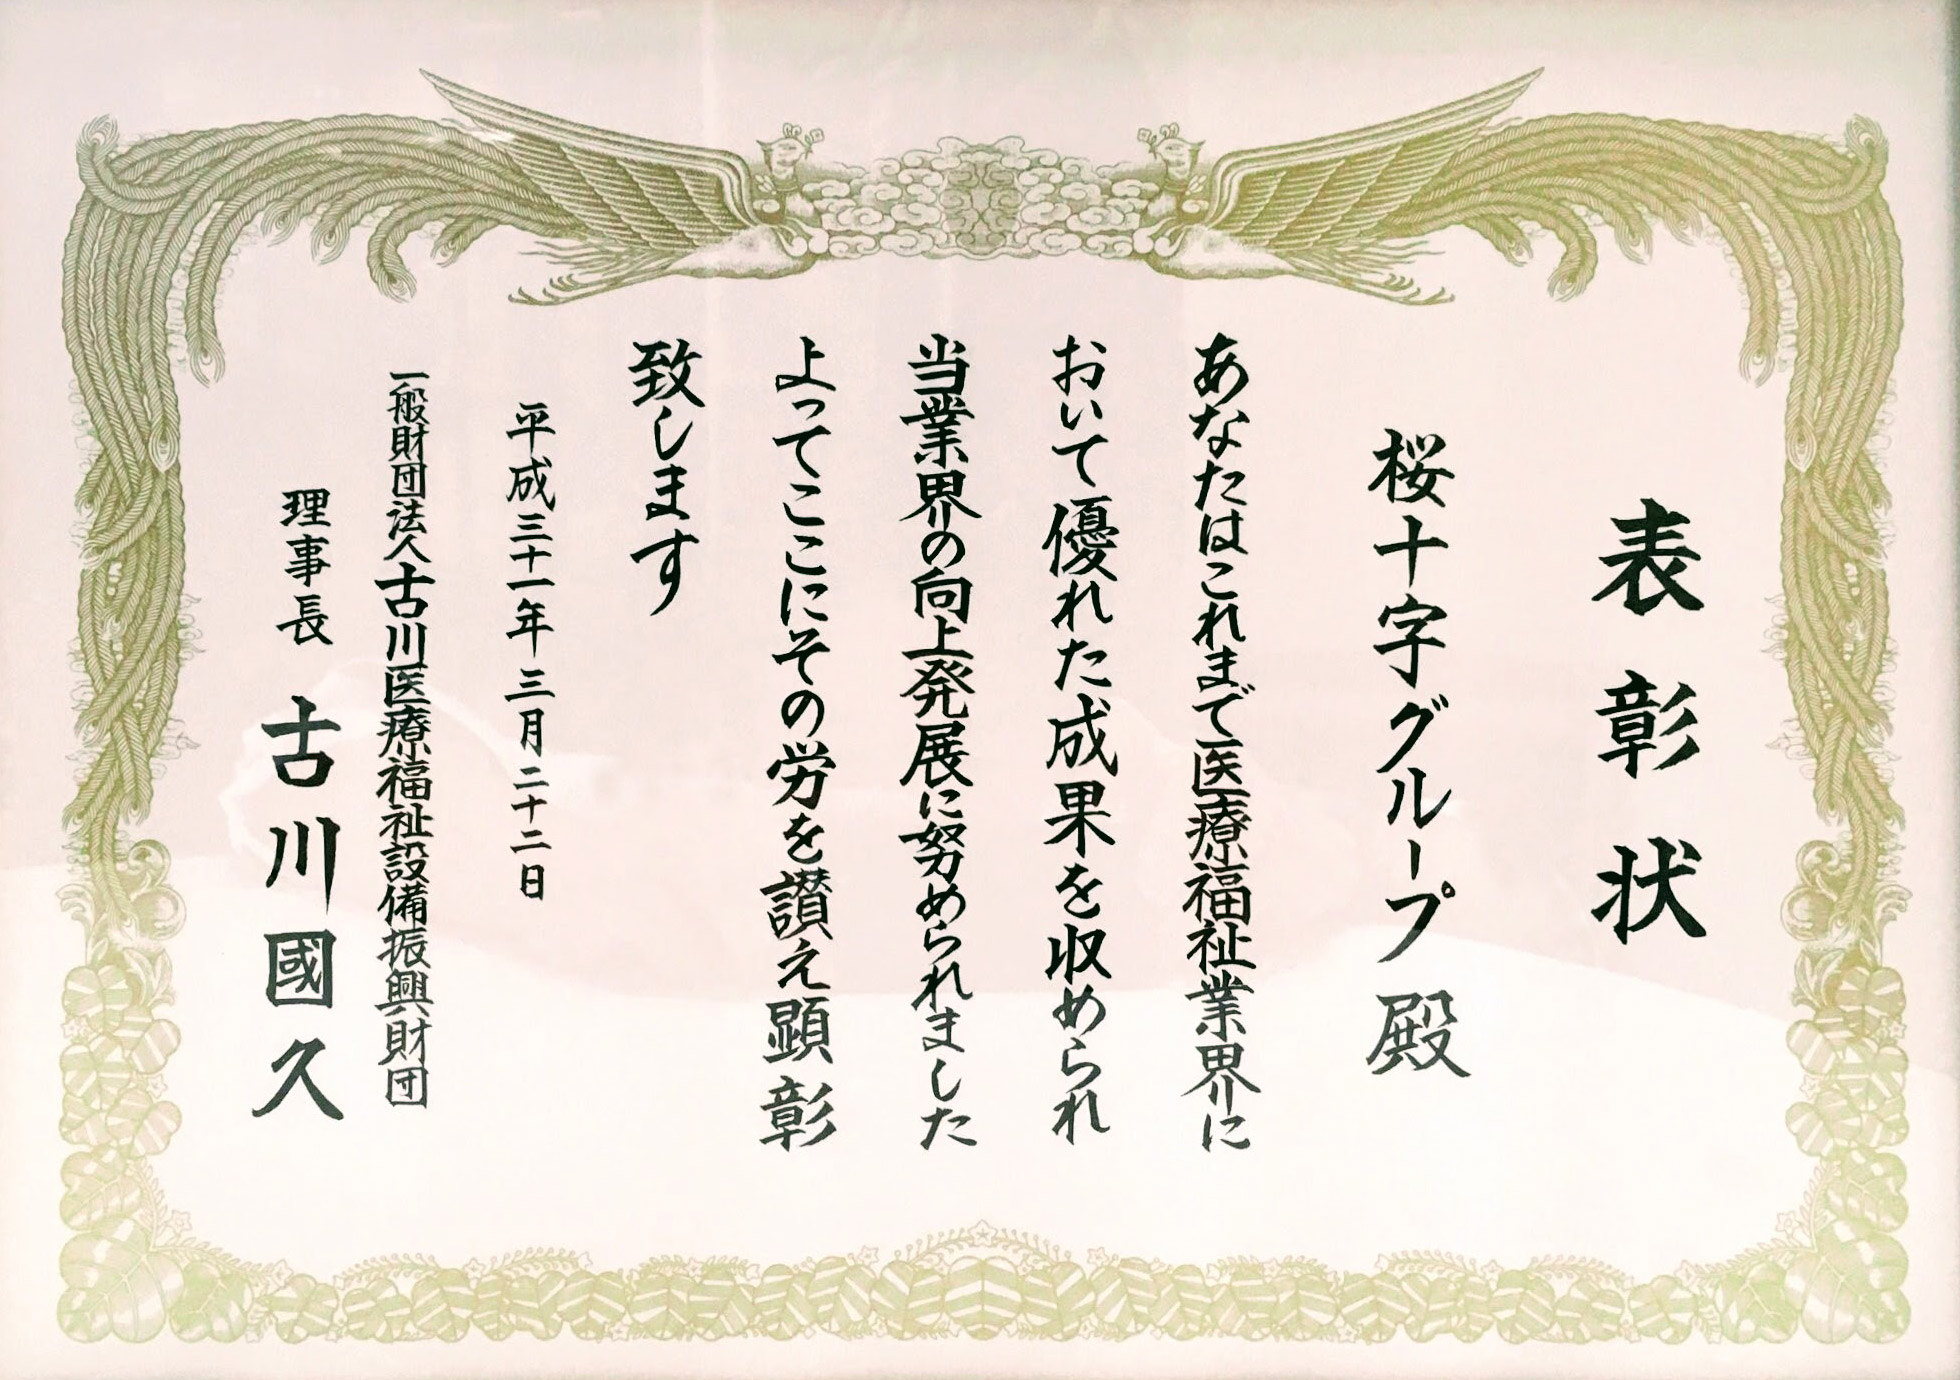 表彰状
桜十字グループ殿
あなたはこれまで医療福祉業界に
おいて優れた成果を収められ
当業界の向上発展に努められました
よってここにその労を讃え顕彰
致します
平成三十一年三月二十二日
一般財団法人古川医療福祉設備振興財団
理事長 古川國久